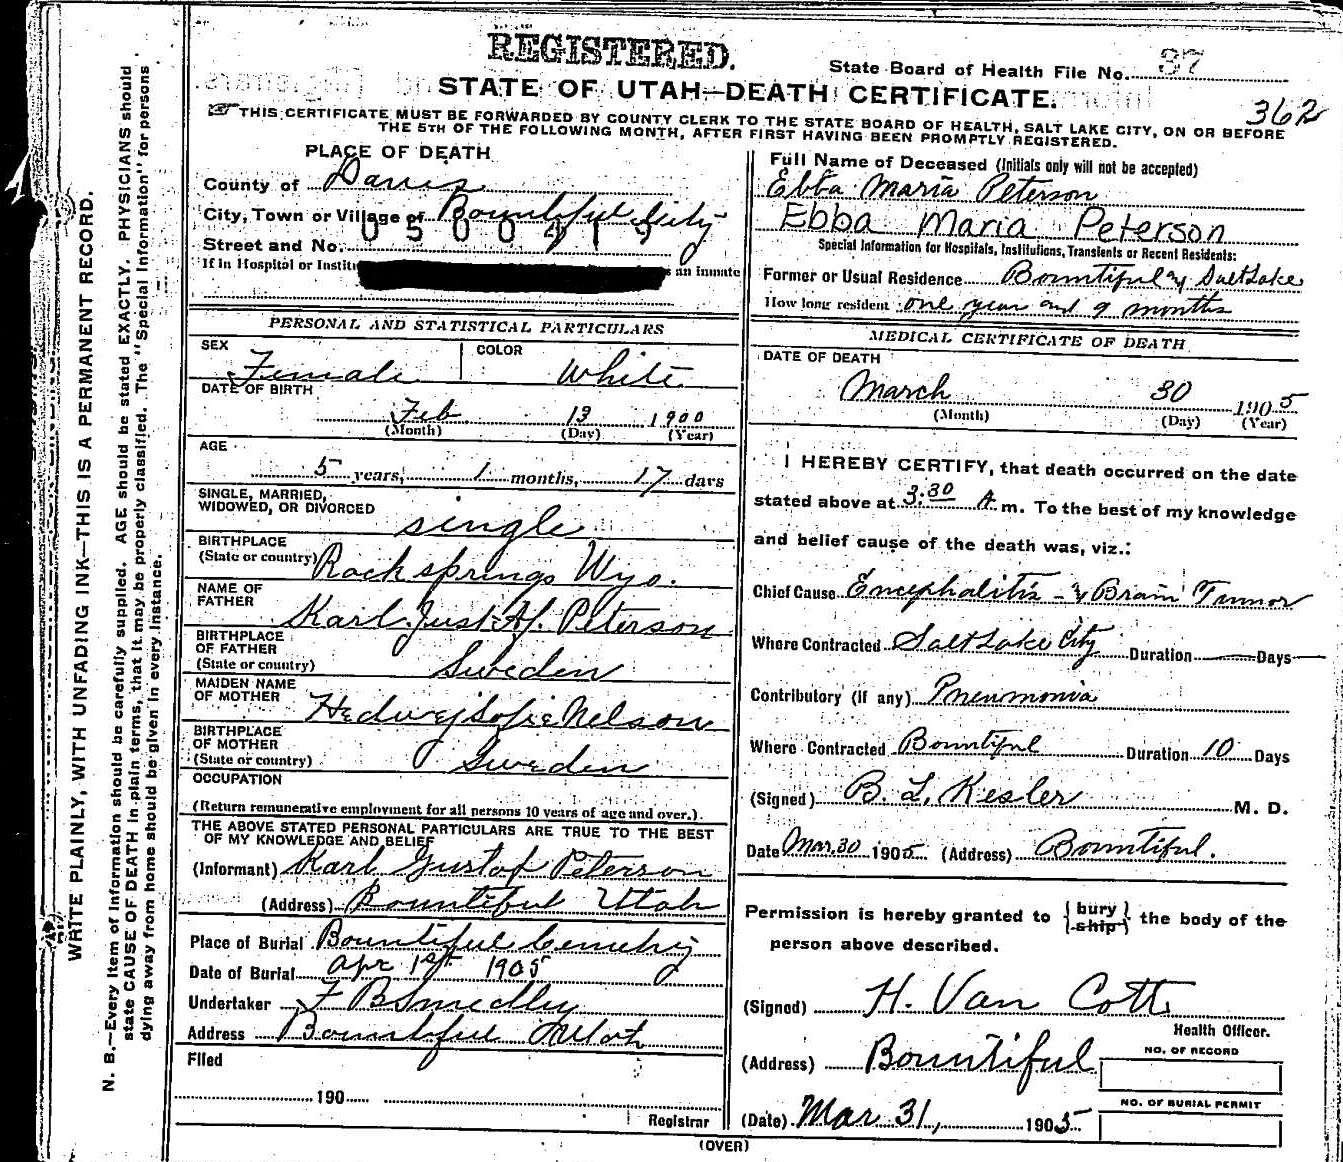 REGISTERED.
State Board of Health File No. 37
STATE OF UTAH—DEATH CERTIFICATE.
362
THIS CERTIFICATE MUST BE FORWARDED BY COUNTY CLERK TO THE STATE BOARD OF HEALTH, SALT LAKE CITY, ON OR BEFORE
THE 5TH OF THE FOLLOWING MONTH, AFTER FIRST HAVING BEEN PROMPTLY REGISTERED.
WRITE PLAINLY, WITH UNFADING INK—THIS IS A PERMANENT RECORD.
N. B.—Every item of information should be carefully supplied. AGE should be stated EXACTLY. PHYSICIANS should
state CAUSE OF DEATH in plain terms, that it may be properly classified. The "Special Information" for persons
dying away from home should be given in every instance.
PLACE OF DEATH
County of Davis
City, Town or Village of Bountiful City
0500415
Street and No.
If in Hospital or Institu
s an inmate
PERSONAL AND STATISTICAL PARTICULARS
SEX
Female
COLOR
White
DATE OF BIRTH
Feb 13 1900
(Month) (Day) (Year)
AGE
5 years, 1 months, 17 days
SINGLE, MARRIED,
WIDOWED, OR DIVORCED
single
BIRTHPLACE
(State or country) Rock springs Wyo.
NAME OF
FATHER
Karl Just Af. Peterson
BIRTHPLACE
OF FATHER
(State or country) Sweden
MAIDEN NAME
OF MOTHER
Hedwej Sofie Nelson
BIRTHPLACE
OF MOTHER
(State or country) Sweden
OCCUPATION
(Return remunerative employment for all persons 10 years of age and over.)
THE ABOVE STATED PERSONAL PARTICULARS ARE TRUE TO THE BEST
OF MY KNOWLEDGE AND BELIEF
(Informant) Karl Gustof Peterson
(Address) Bountiful Utah
Place of Burial Bountiful Cemetry
Date of Burial Apr 1st 1905
Undertaker F B Smedley
Address Bountiful Utah
Filed
190
Registrar
Full Name of Deceased (Initials only will not be accepted)
Ebba Maria Peterson
Ebba Maria Peterson
Special Information for Hospitals, Institutions, Transients or Recent Residents:
Former or Usual Residence Bountiful & Salt Lake
How long resident one year and 9 months
MEDICAL CERTIFICATE OF DEATH
DATE OF DEATH
March 30 1905
(Month) (Day) (Year)
I HEREBY CERTIFY, that death occurred on the date
stated above at 3.30 A m. To the best of my knowledge
and belief cause of the death was, viz.:
Chief Cause Encephalitis - & Brain Tumor
Where Contracted Salt Lake City Duration — Days
Contributory (if any) Pneumonia
Where Contracted Bountiful Duration 10 Days
(Signed) B. L. Kesler M. D.
Date Mar. 30 1905 (Address) Bountiful.
Permission is hereby granted to { bury ship } the body of the
person above described.
(Signed) H. Van Cott
Health Officer.
(Address) Bountiful
NO. OF RECORD
NO. OF BURIAL PERMIT
(Date) Mar 31, 1905
(OVER)